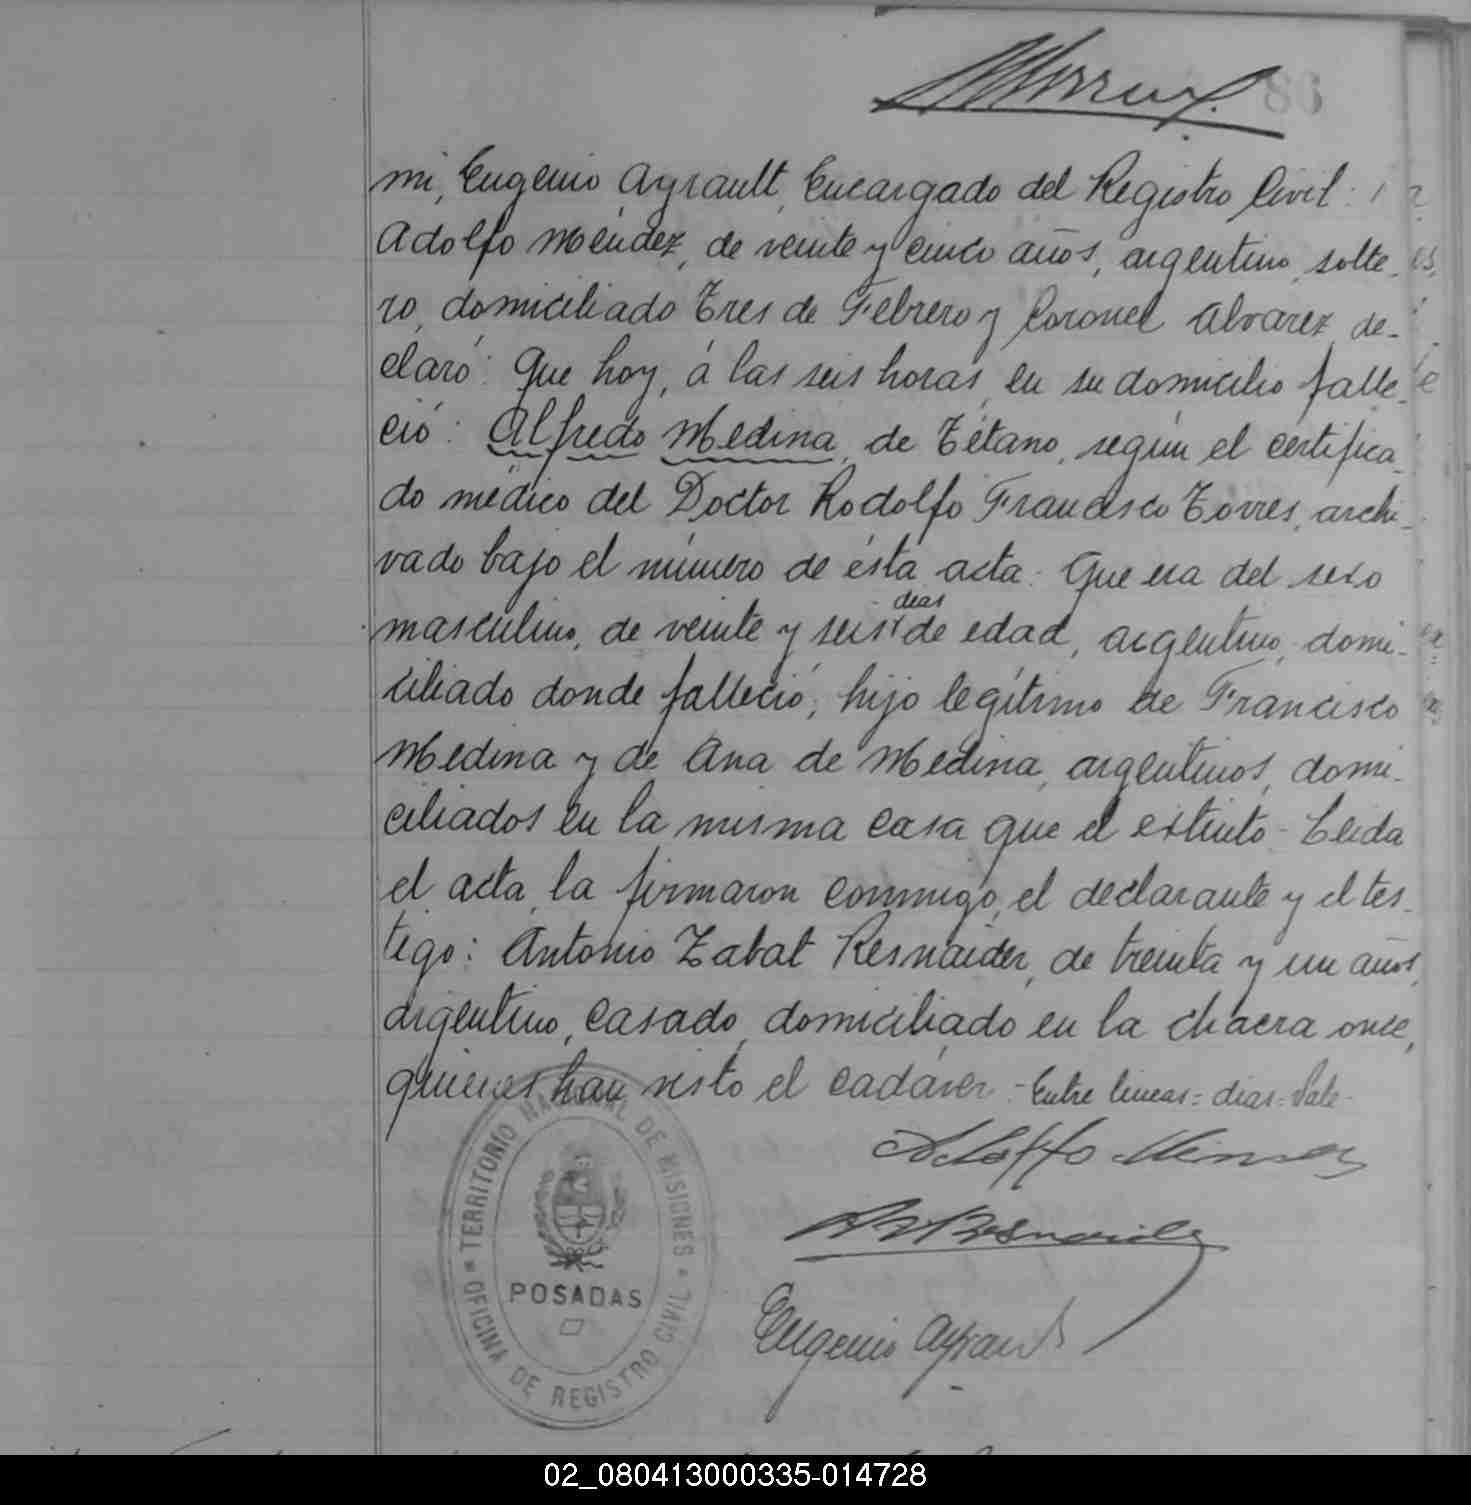 mi, Eugenio Ayrault, Encargado del Registro Civil:
Adolfo Méndez, de veinte y cinco años, argentino, solte-
ro, domiciliado Tres de Febrero y Coronel Alvarez, de-
claró: Que hoy, á las seis horas, en su domicilio falle-
ció: Alfredo Medina, de Tétano, según el certifica-
do médico del Doctor Rodolfo Francisco Torres, archi-
vado bajo el número de ésta acta. Que era del sexo
dias
masculino, de veinte y seis de edad, argentino, domi-
ciliado donde falleció, hijo legítimo de Francisco
Medina y de Ana de Medina, argentinos, domi-
ciliados en la misma casa que el extinto - Leida
el acta, la firmaron conmigo, el declarante y el tes-
tigo: Antonio Zabat Resnaider, de treinta y un años,
argentino, casado, domiciliado en la chacra once,
quienes han visto el cadáver - Entre lineas = dias = Vale -
Adolfo
Eugenio Ayrault
TERRITORIO NACIONAL DE MISIONES
POSADAS
OFICINA DE REGISTRO CIVIL
02_080413000335-014728